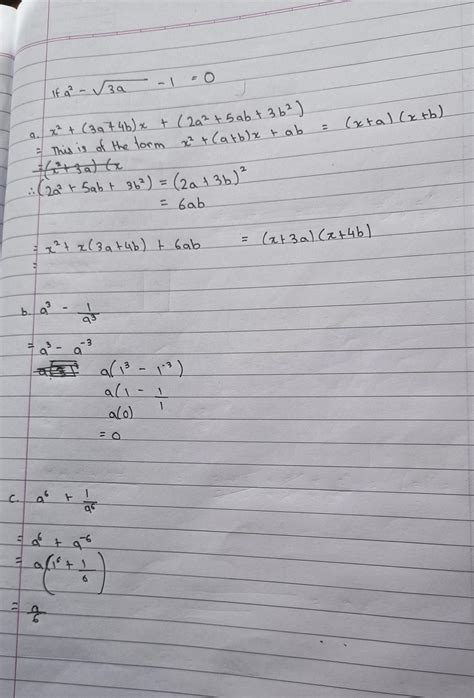 If a² - √3a - 1 = 0
a. x² + (3a+4b)x + (2a² + 5ab + 3b²)
= This is of the form x² + (a+b)x + ab = (x+a)(x+b)
= (x²+3a)(x
∴ (2a² + 5ab + 3b²) = (2a + 3b)²
= 6ab
= x² + x(3a+4b) + 6ab = (x+3a)(x+4b)
=
b. a³ - 1/a³
= a³ - a⁻³
a(1³ - 1⁻³)
a(1 - 1/1
a(0)
= 0
c. a⁶ + 1/a⁶
= a⁶ + a⁻⁶
= a(1⁶ + 1/6)
= a/6